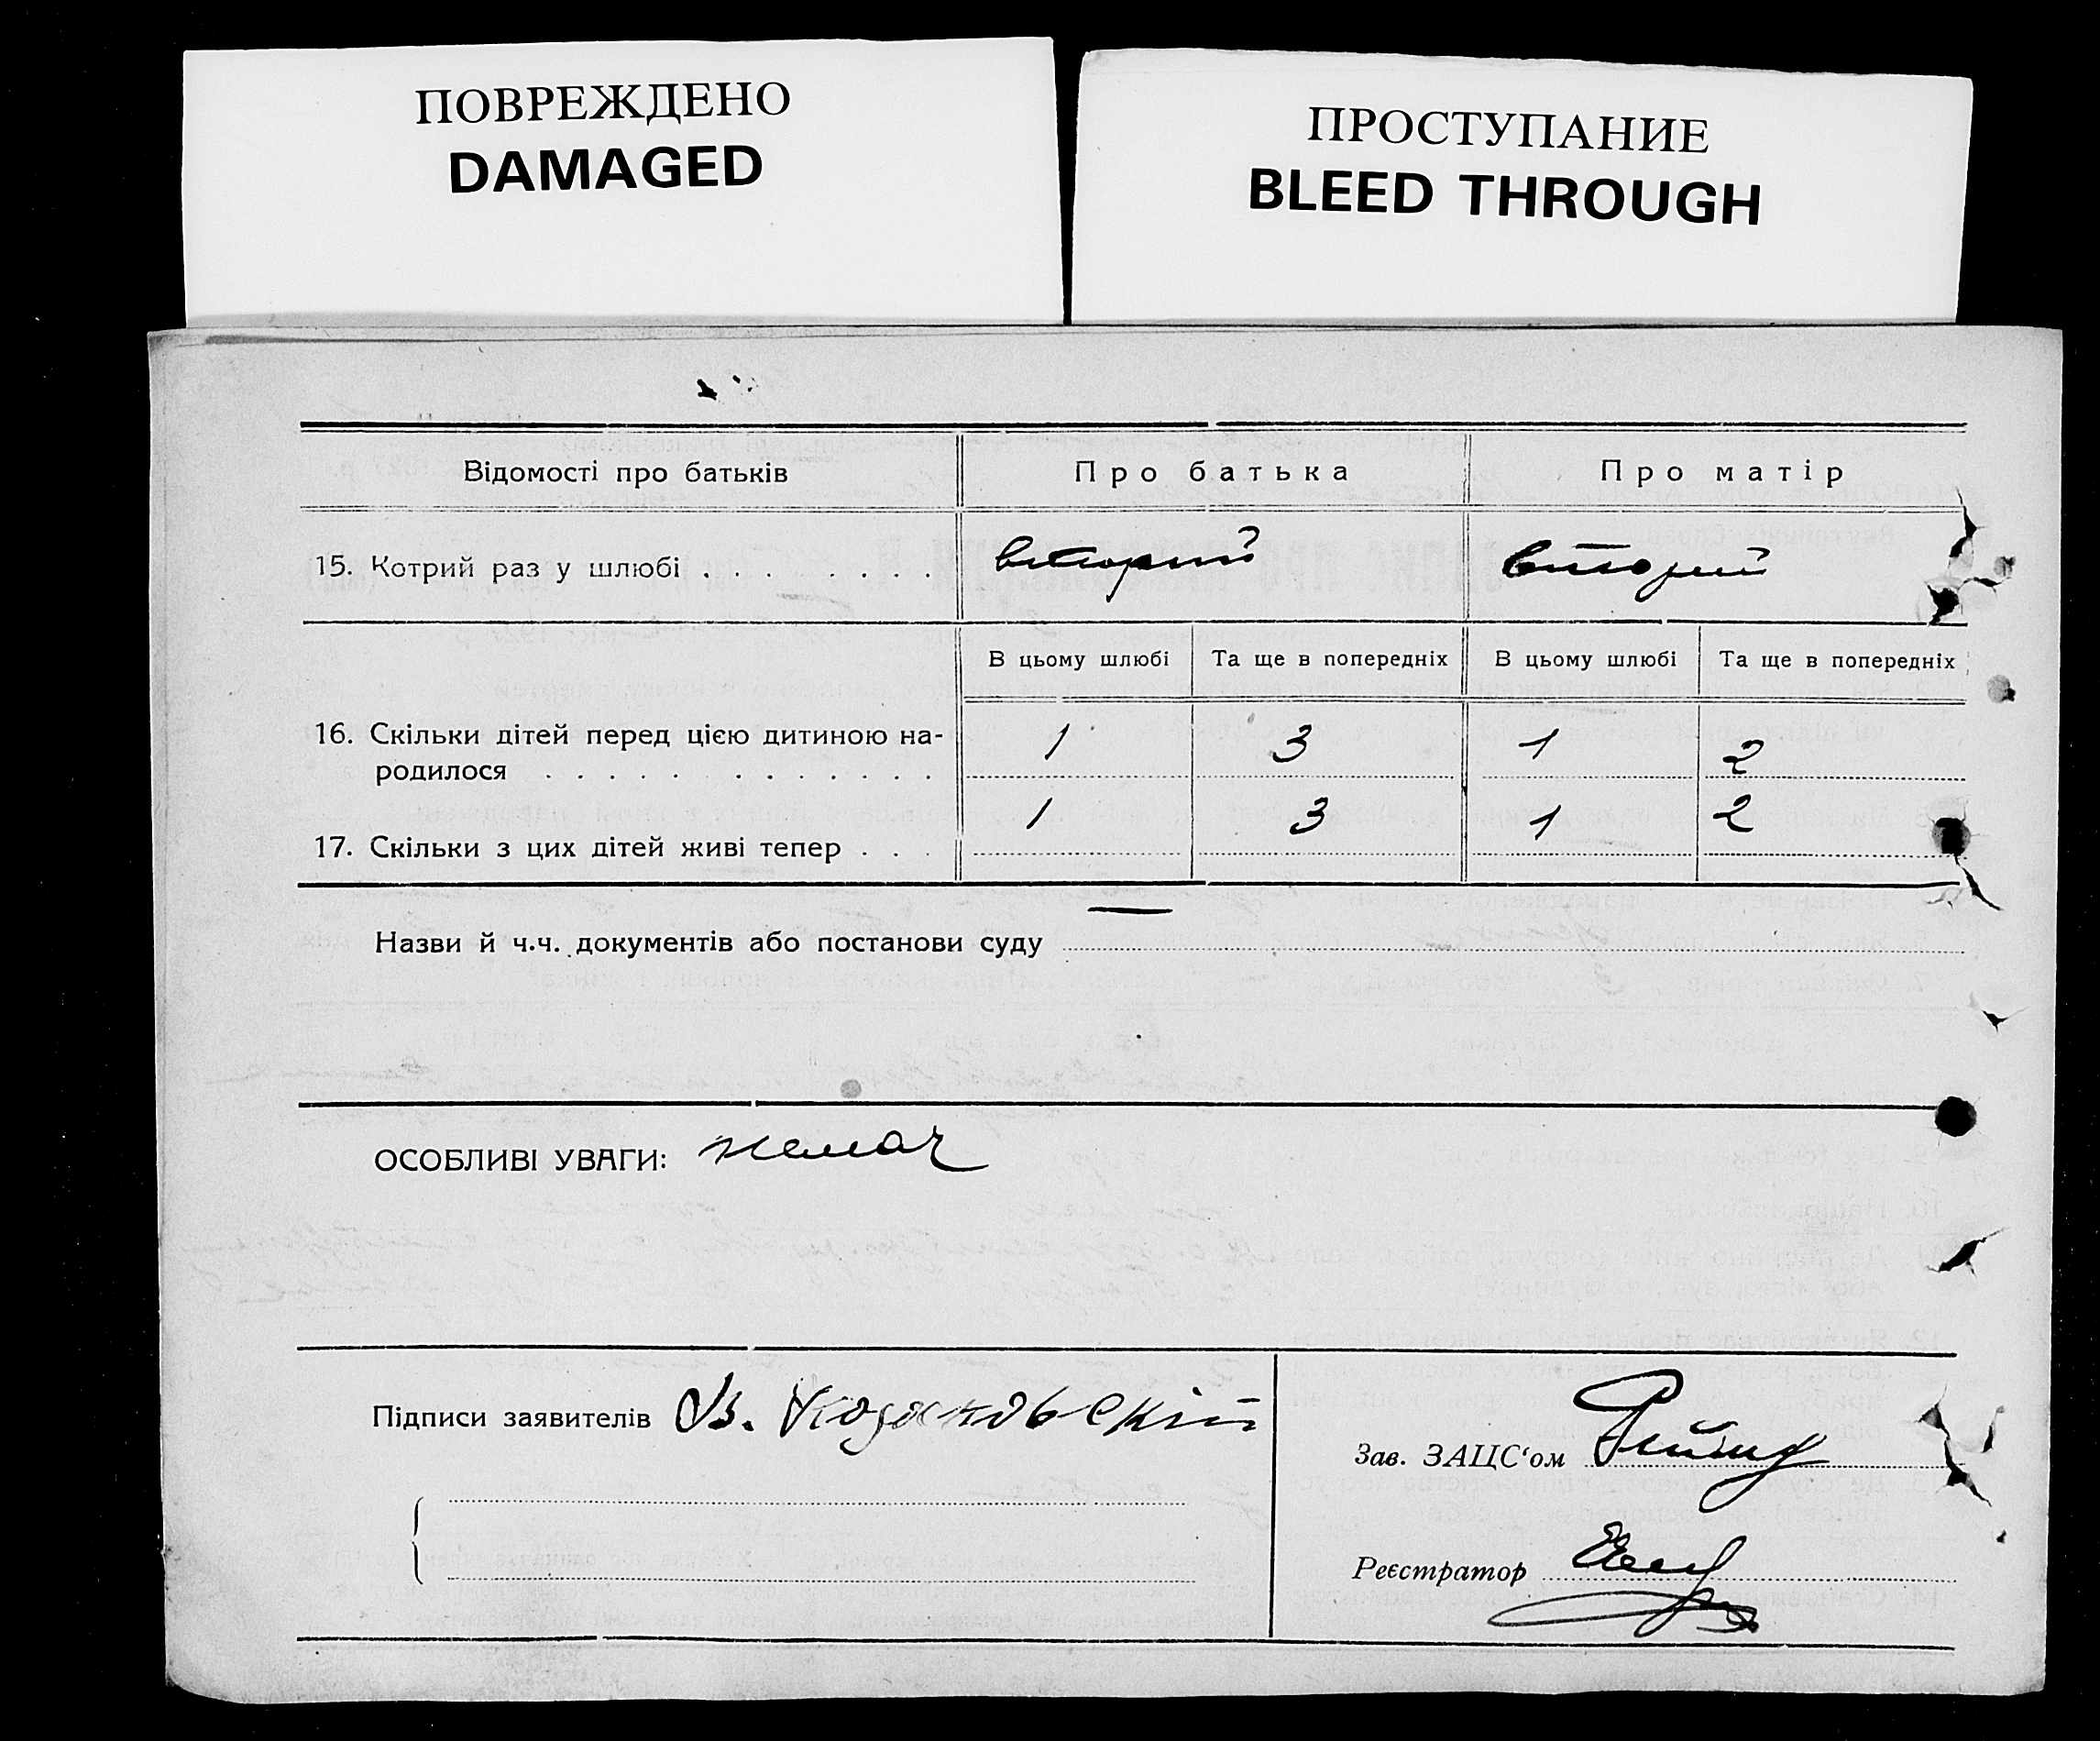 ПОВРЕЖДЕНО
DAMAGED
ПРОСТУПАНИЕ
BLEED THROUGH
Відомості про батьків
Про батька
Про матір
15. Котрий раз у шлюбі . . . . . . . .
вторий
вторий
В цьому шлюбі
Та ще в попередніх
В цьому шлюбі
Та ще в попередніх
16. Скільки дітей перед цією дитиною на-
родилося . . . . . . . . . . . . .
1
3
1
2
17. Скільки з цих дітей живі тепер . . .
1
3
1
2
Назви й ч.ч. документів або постанови суду —
ОСОБЛИВІ УВАГИ: немає
Підписи заявителів В.
Зав. ЗАЦС‘ом
Реєстратор